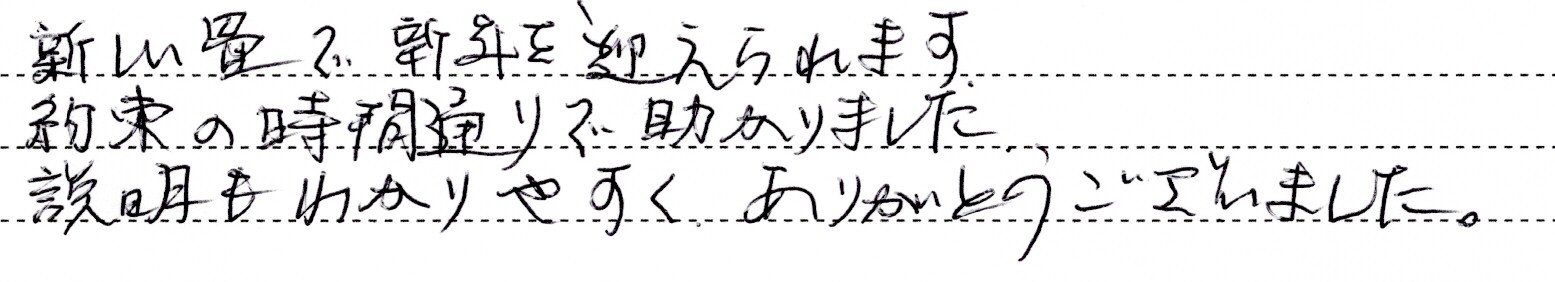 新しい畳で新年を迎えられます
約束の時間通りで助かりました.
説明もわかりやすく ありがとうございました。